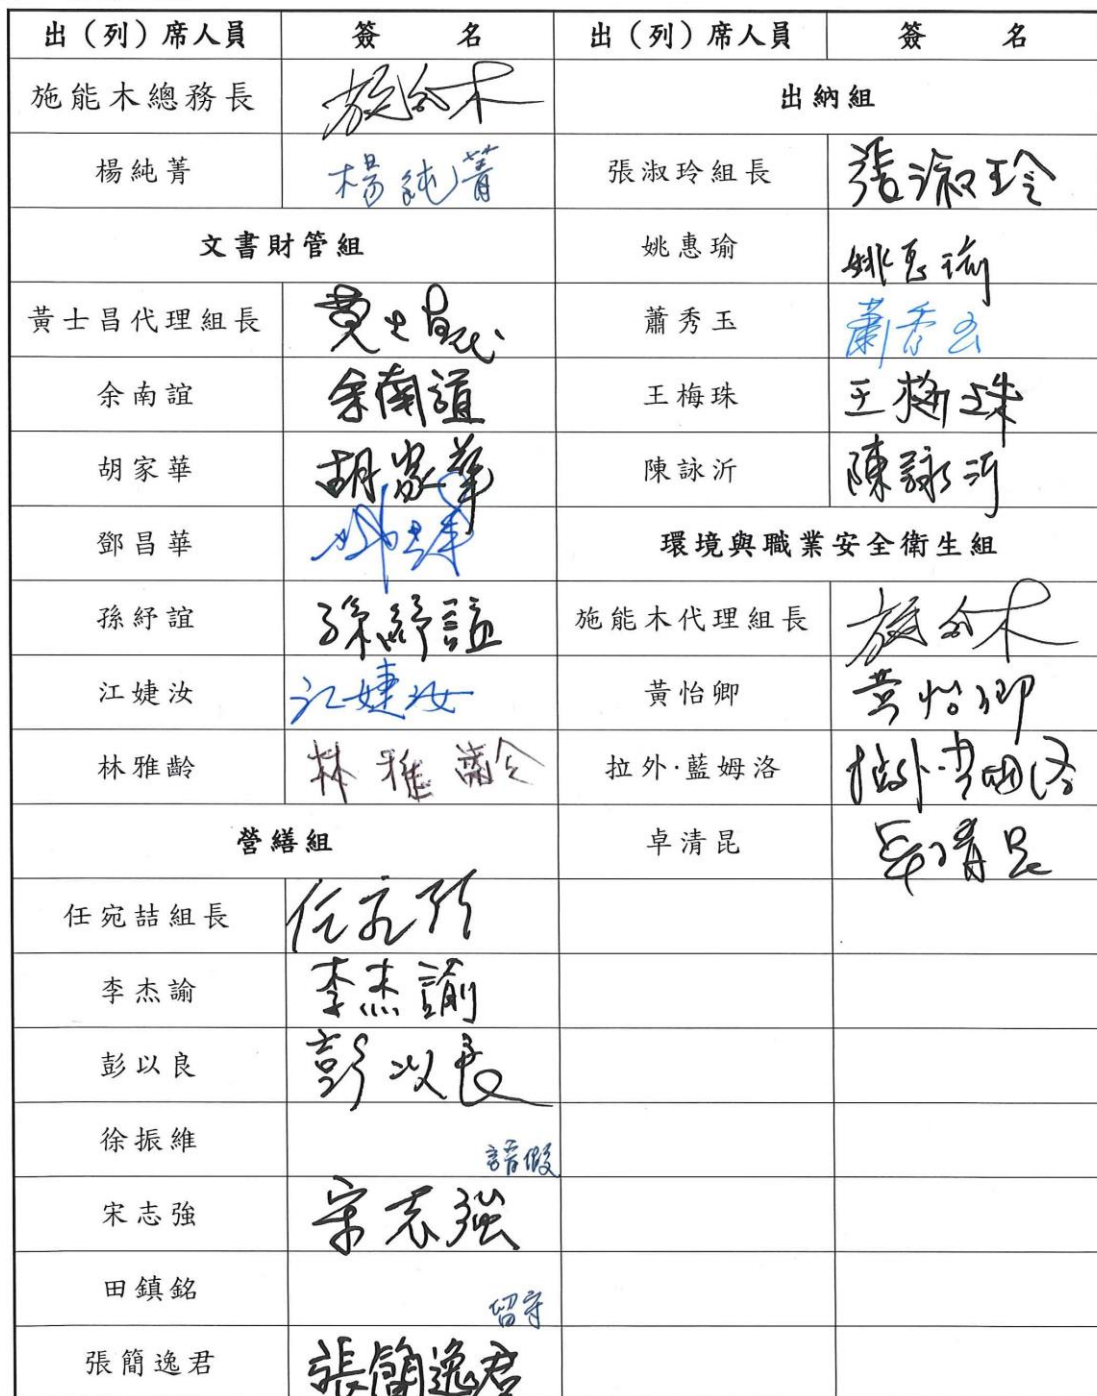 出（列）席人員 簽 名 出（列）席人員 簽 名
施能木總務長 施能木 出納組
楊純菁 楊純菁 張淑玲組長 張淑玲
文書財管組 姚惠瑜 姚惠瑜
黃士昌代理組長 黃士昌代 蕭秀玉 蕭秀玉
余南誼 余南誼 王梅珠 王梅珠
胡家華 胡家華 陳詠沂 陳詠沂
鄧昌華 鄧昌華 環境與職業安全衛生組
孫紓誼 孫紓誼 施能木代理組長 施能木
江婕汝 江婕汝 黃怡卿 黃怡卿
林雅齡 林雅齡 拉外·藍姆洛 拉外·藍姆洛
營繕組 卓清昆 卓清昆
任宛喆組長 任宛喆
李杰諭 李杰諭
彭以良 彭以良
徐振維 請假
宋志強 宋志強
田鎮銘 留守
張簡逸君 張簡逸君